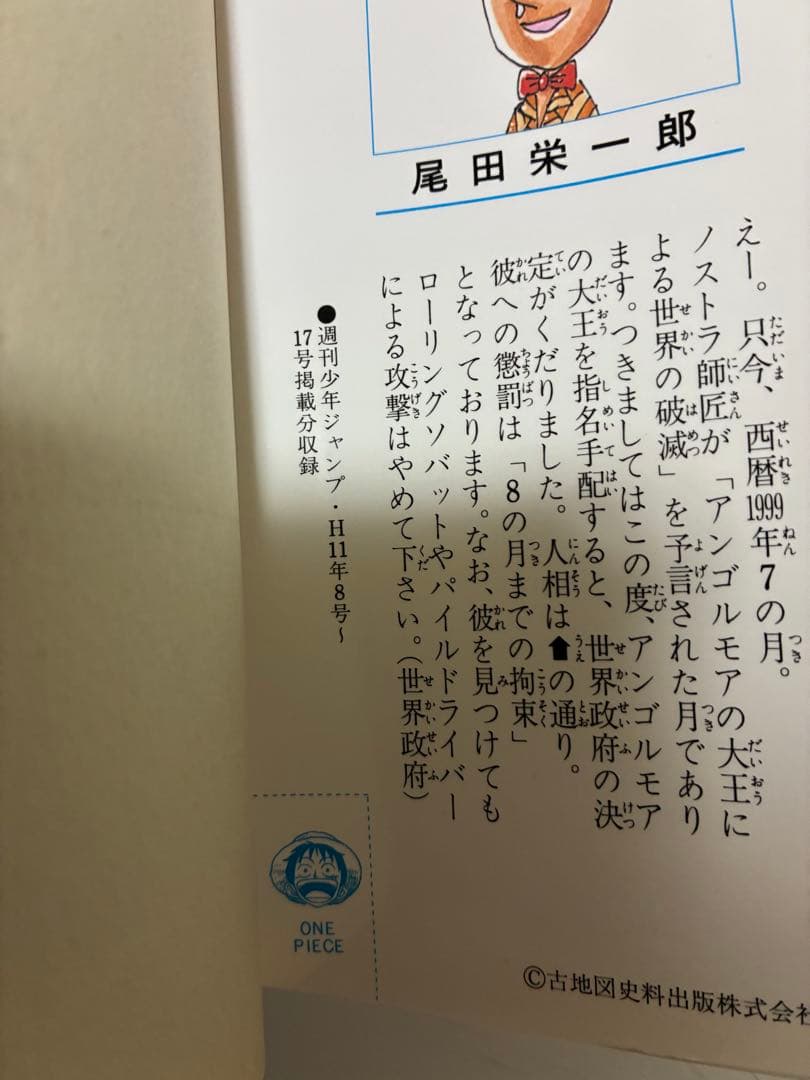 尾田栄一郎
えー。只今、西暦1999年7の月。
ノストラ師匠が「アンゴルモアの大王に
よる世界の破滅」を予言された月であり
ます。つきましてはこの度、アンゴルモア
の大王を指名手配すると、世界政府の決
定がくだりました。人相は⬆の通り。
彼への懲罰は「8の月までの拘束」
となっております。なお、彼を見つけても
ローリングソバットやパイルドライバー
による攻撃はやめて下さい。(世界政府)
●週刊少年ジャンプ・H11年8号～
17号掲載分収録
ONE
PIECE
©古地図史料出版株式会社